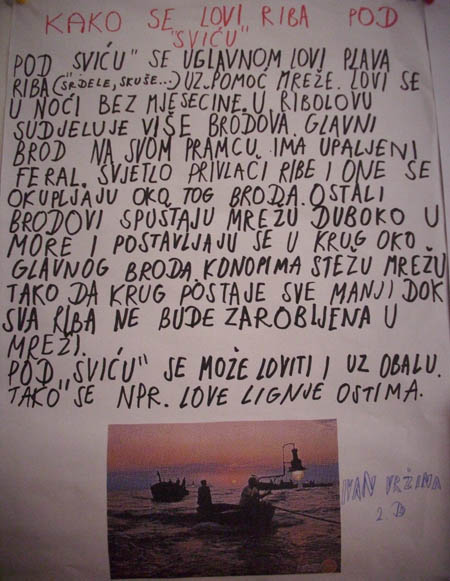 KAKO SE LOVI RIBA POD
"SVIĆU"
POD SVIĆU" SE UGLAVNOM LOVI PLAVA
RIBA (SRDELE, SKUŠE...) UZ POMOĆ MREŽE. LOVI SE
U NOĆI BEZ MJESEČINE. U RIBOLOVU
SUDJELUJE VIŠE BRODOVA. GLAVNI
BROD NA SVOM PRAMCU IMA UPALJENI
FERAL. SVJETLO PRIVLAČI RIBE I ONE SE
OKUPLJAJU OKO TOG BRODA. OSTALI
BRODOVI SPUŠTAJU MREŽU DUBOKO U
MORE I POSTAVLJAJU SE U KRUG OKO
GLAVNOG BRODA. KONOPIMA STEŽU MREŽU
TAKO DA KRUG POSTAJE SVE MANJI DOK
SVA RIBA NE BUDE ZAROBLJENA U
MREŽI.
POD "SVIĆU" SE MOŽE LOVITI I UZ OBALU.
TAKO SE NPR. LOVE LIGNJE OSTIMA.
IVAN VRŽINA
2. D